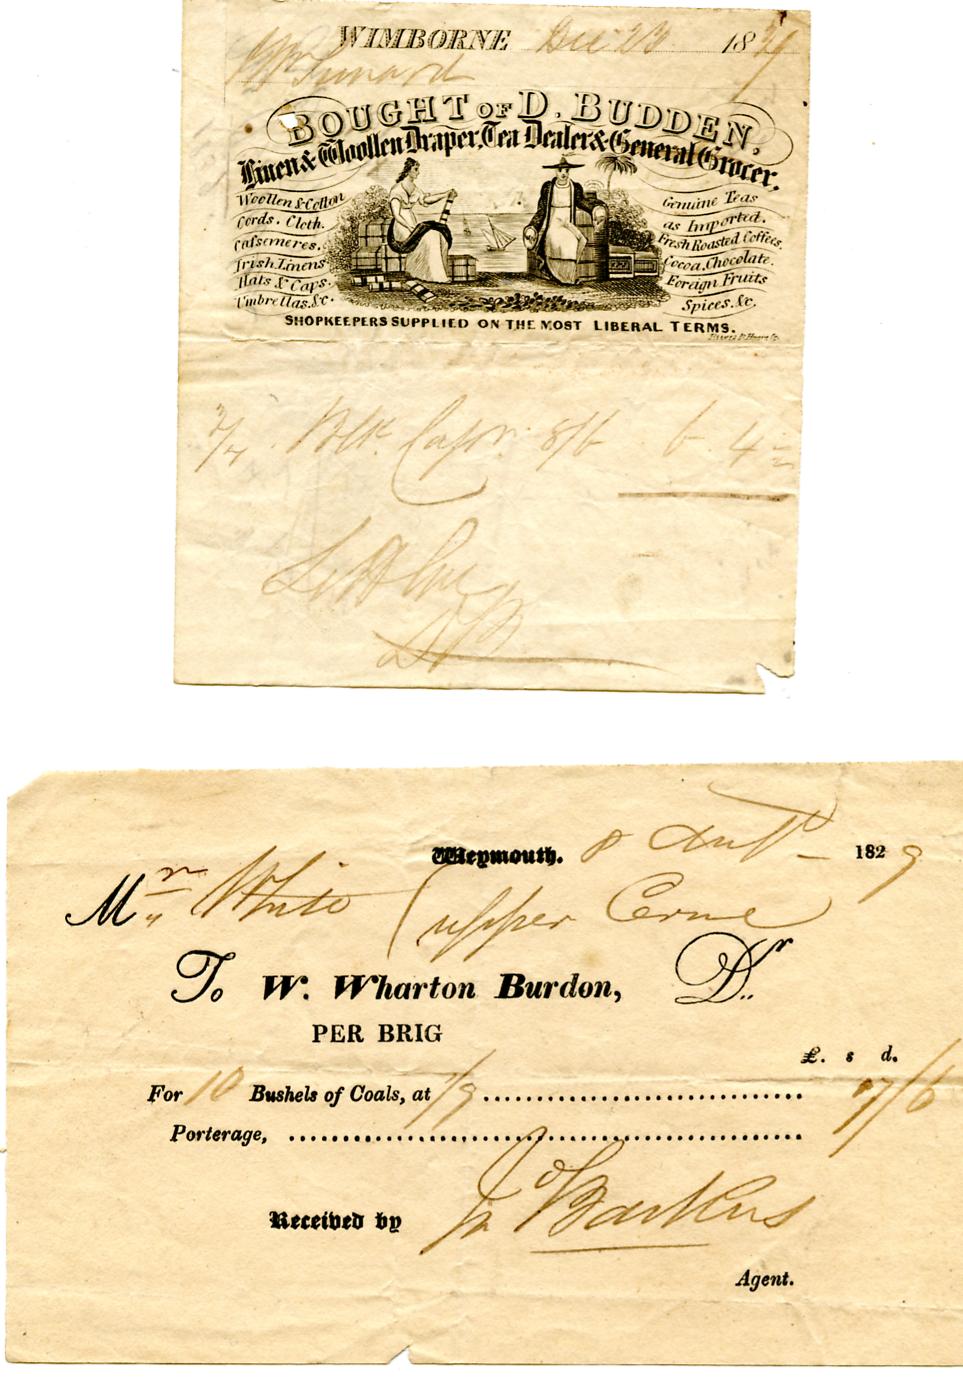 WIMBORNE Dec 23 18
BOUGHT OF D. BUDDEN,
Linen & Woollen Draper, Tea Dealer & General Grocer.
Woollen & Cotton
Cords. Cloth.
Cassimeres.
Irish Linens
Hats & Caps.
Umbrellas. &c.
Genuine Teas
as Imported.
Fresh Roasted Coffees.
Cocoa. Chocolate.
Foreign Fruits
Spices. &c.
SHOPKEEPERS SUPPLIED ON THE MOST LIBERAL TERMS.
Blk 8/6 6 4
Weymouth. 8 1829
Mr White upper Cerne
To W. Wharton Burdon, Dr
PER BRIG
£. s d.
For 10 Bushels of Coals, at 1/9 17/6
Porterage,
Received by
Agent.